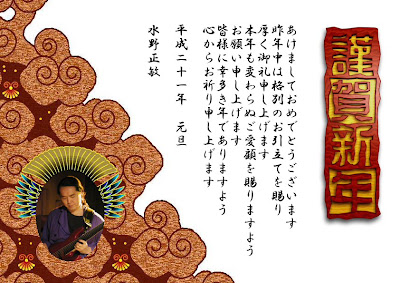 謹賀新年
あけましておめでとうございます
昨年中は格別のお引立てを賜り
厚く御礼申し上げます
本年も変わらぬご愛顧を賜りますよう
お願い申し上げます
皆様に幸多き年でありますよう
心からお祈り申し上げます
平成二十一年 元旦
水野正敏